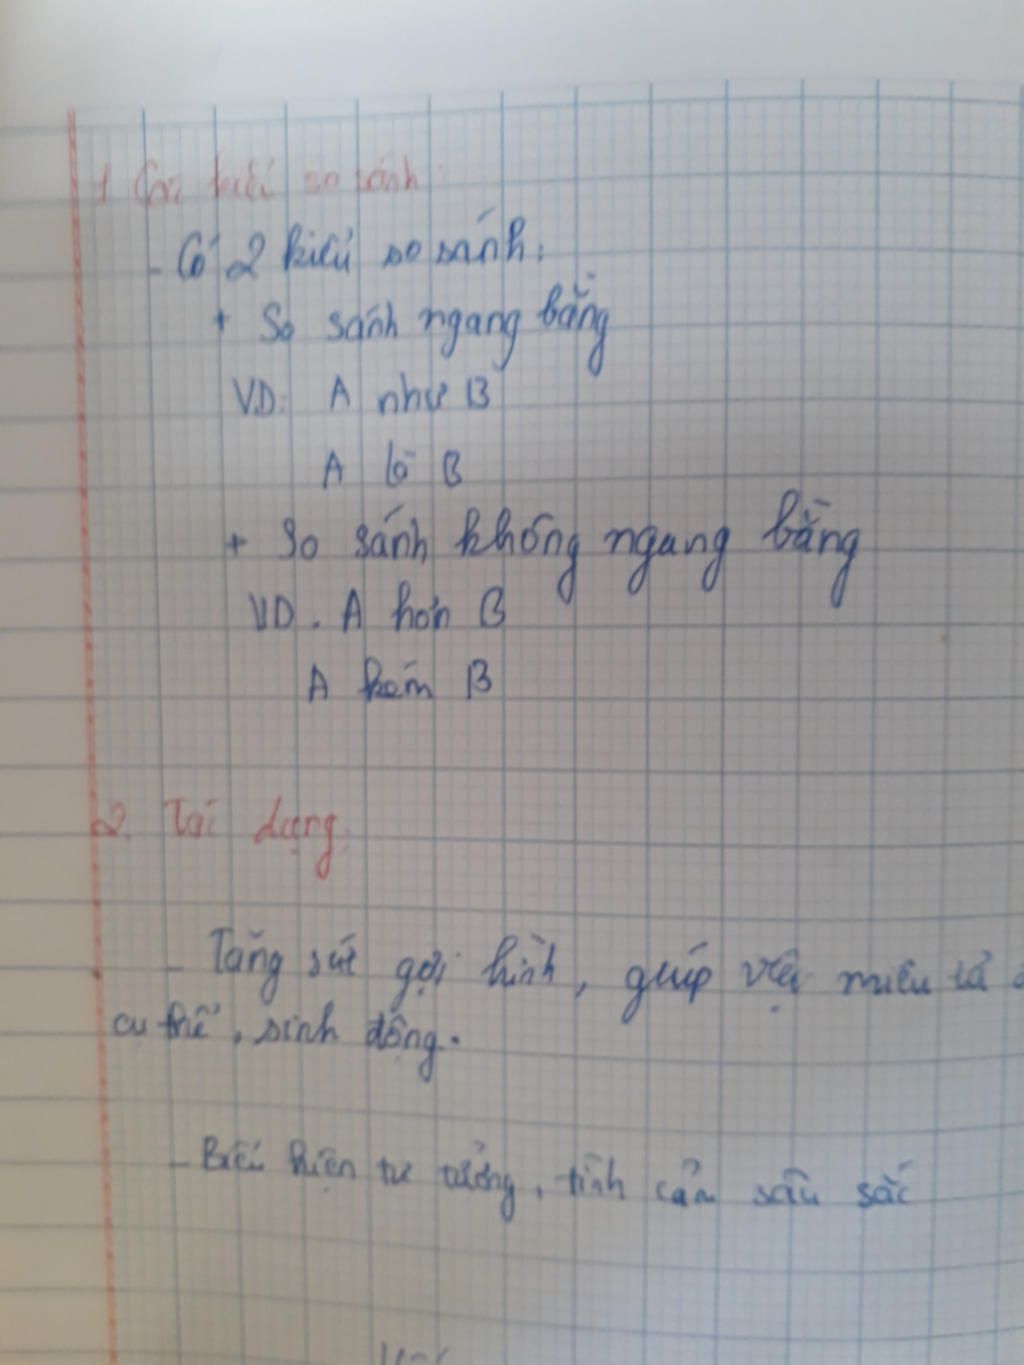 1. Các kiểu so sánh:
- Có 2 kiểu so sánh:
+ So sánh ngang bằng
VD: A như B
A là B
+ So sánh không ngang bằng
VD. A hơn B
A kém B
2. Tác dụng:
- Tăng sức gợi hình, giúp việc miêu tả
cụ thể, sinh động.
- Biểu hiện tư tưởng, tình cảm sâu sắc